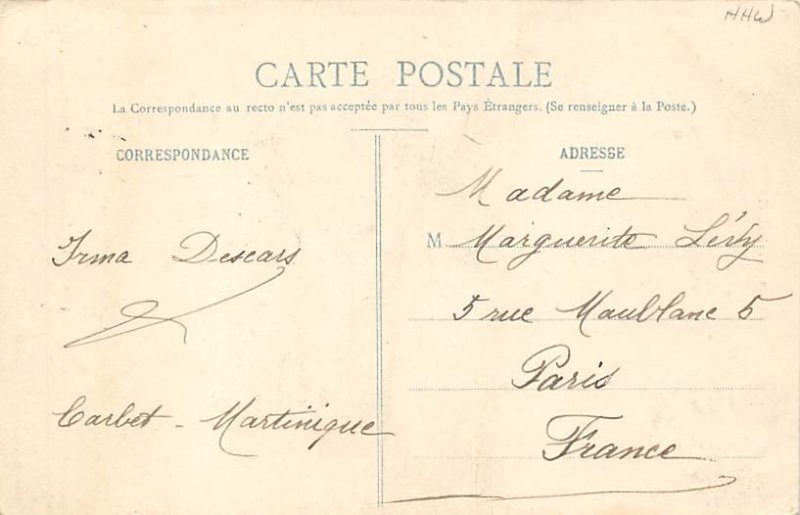 HHW
CARTE POSTALE
La Correspondance au recto n'est pas acceptée par tous les Pays Étrangers. (Se renseigner à la Poste.)
CORRESPONDANCE
Irma Descars
Carbet - Martinique
ADRESSE
Madame
M Marguerite Lévy
5 rue Maublanc 5
Paris
France